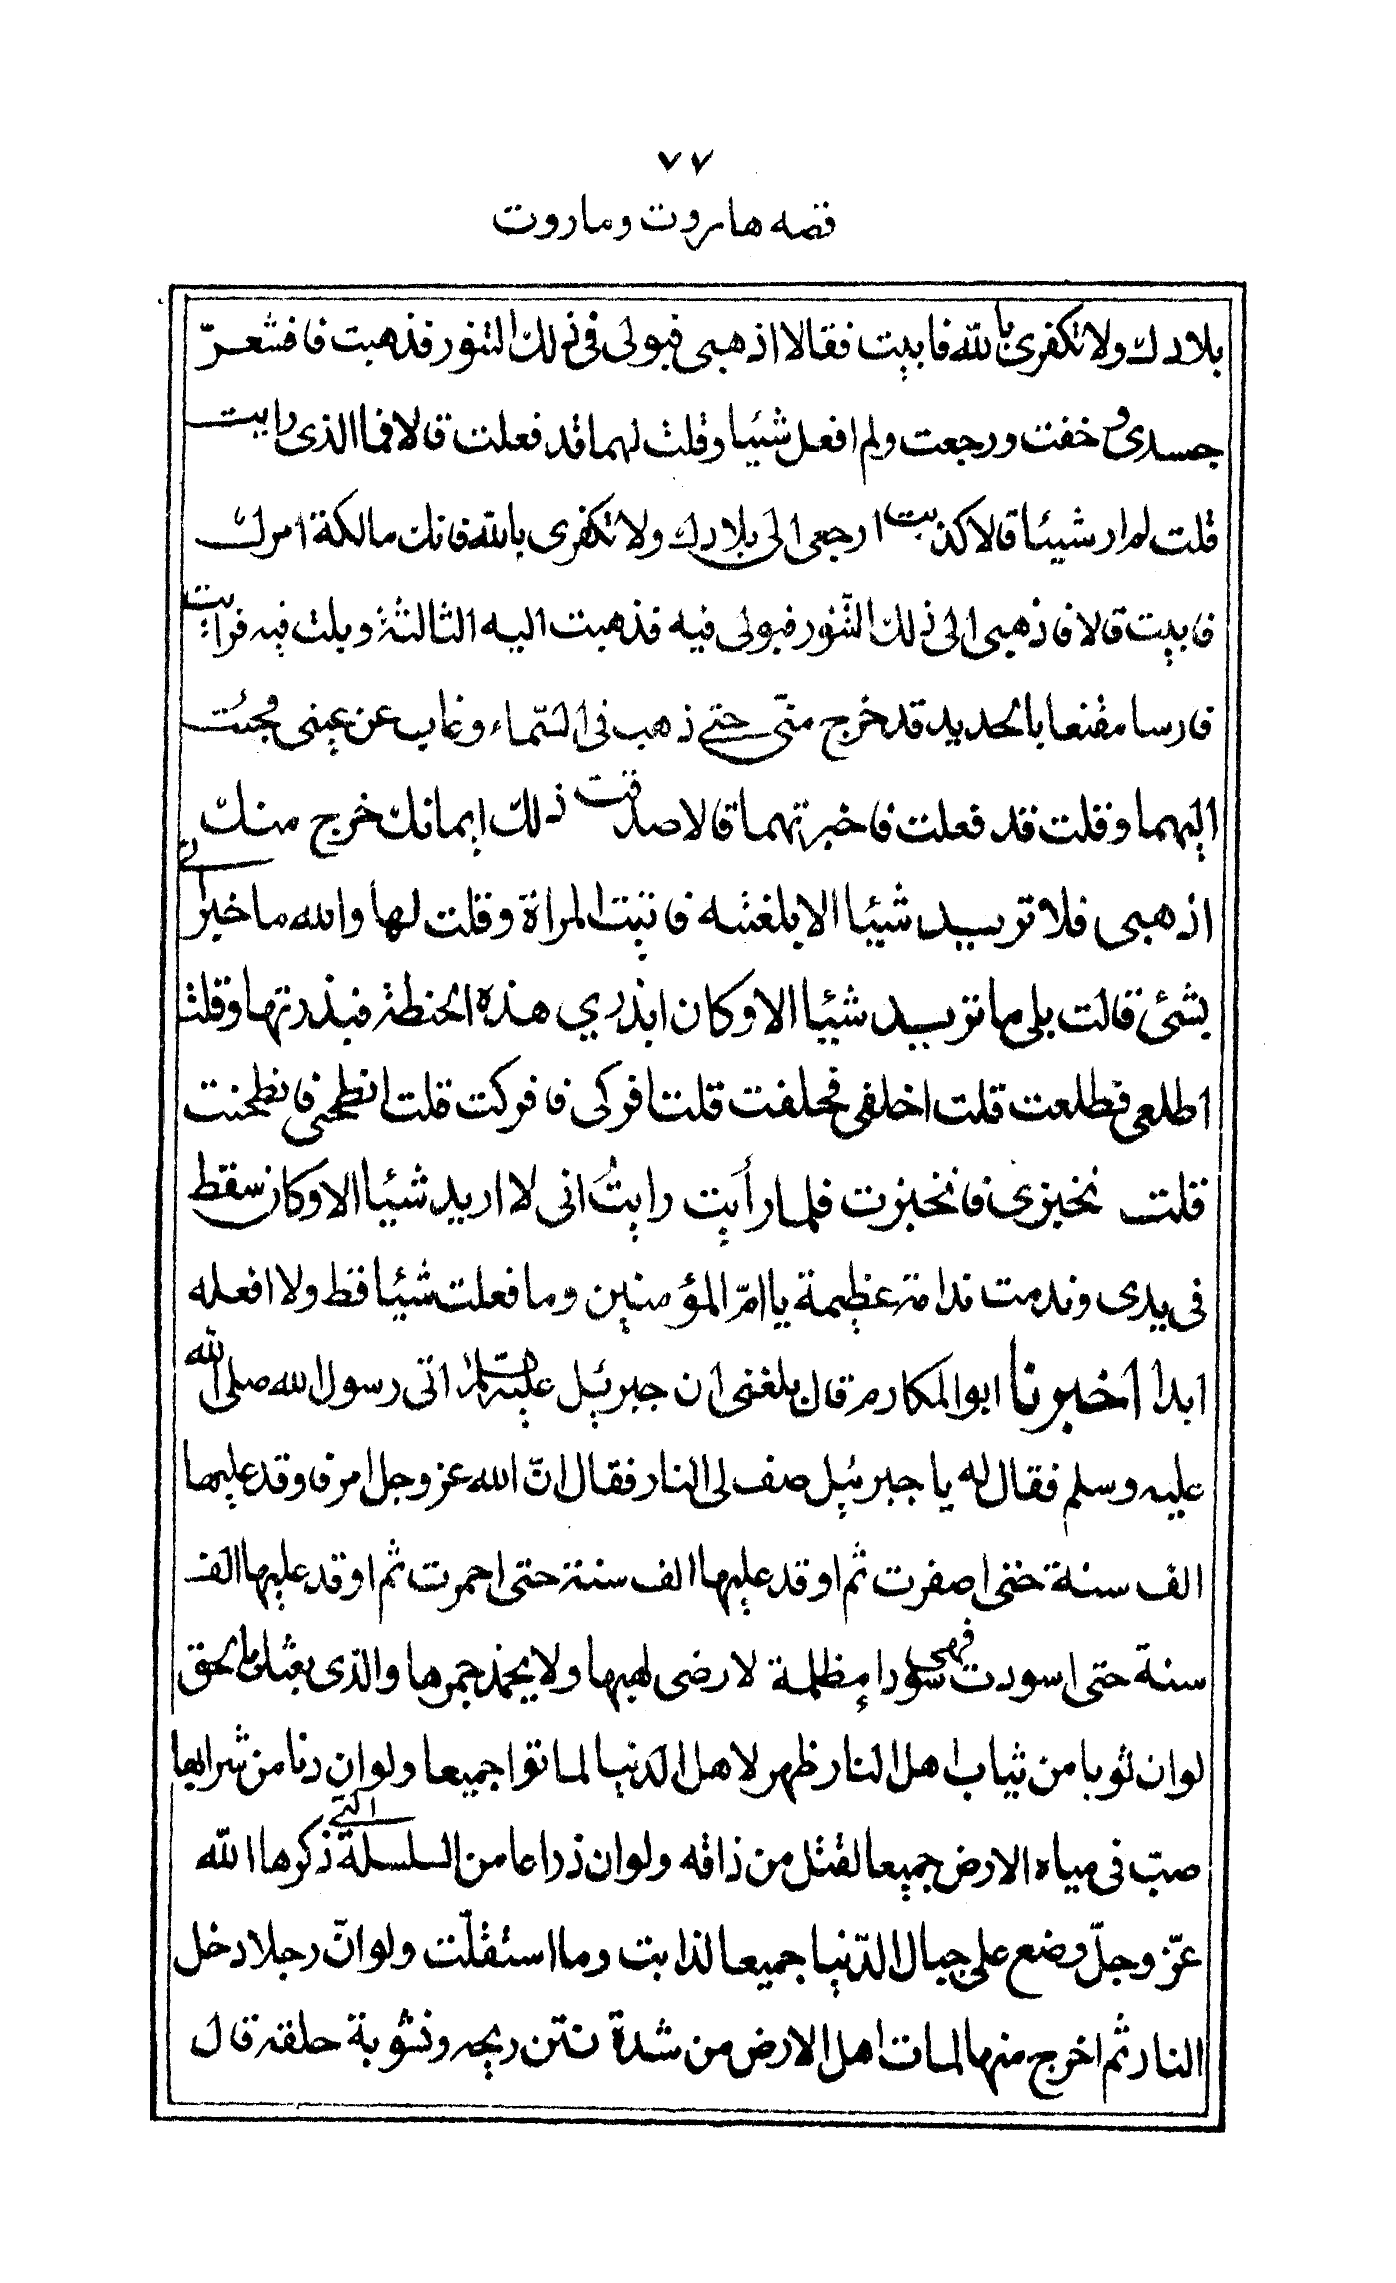 ٧٧
قصه هاروت وماروت
بلادك ولا تكفرى بالله فابيت فقالا اذهبى فبولى فى ذلك التنور فذهبت فاقشعرّ
جسدى وخفت ورجعت ولم افعل شيئا وقلت لهما قد فعلت قالا فما الذى رايت
قلت لم ار شيئا قالا كذبت ارجعى الى بلادك ولا تكفرى بالله فانك مالكة امرك
فابيت قالا فاذهبى الى ذلك التنّور فبولى فيه فذهبت اليه الثالثة وبلت فيه فرايت
فارسا مقنعا بالحديد قد خرج منّى حتى ذهب فى السّماء وغاب عن عينى فجئت
اليهما وقلت قد فعلت فاخبرتهما قالا صدقت ذلك ايمانك خرج منك
اذهبى فلا تريد شيئا الا بلغته فاتيت المراة وقلت لها والله ما خبرانى
بشئ قالت بلى ما تريد شيئا الا وكان ابذرى هذه الحنطة فبذرتها وقلت
اطلعى فطلعت قلت اخلفى فخلفت قلت افركى فافركت قلت انطحنى فانطحنت
قلت نخبزى فانخبزت فلما رأيت رايتُ انى لا اريد شيئا الا وكان سقط
فى يدى وندمت ندامة عظيمة يا امّ المؤمنين وما فعلت شيئا قط ولا افعله
ابدا اخبرنا ابو المكارم قال بلغنى ان جبرئيل عليه السّلام اتى رسول الله صلى الله
عليه وسلم فقال له يا جبرئيل صف لى النار فقال انّ الله عز وجل امر فاوقد عليها
الف سنة حتى اصفرت ثم اوقد عليها الف سنة حتى احمرت ثم اوقد عليها الف
سنة حتى اسودت فهى سوداء مظلمة لا رضى لهبها ولا يخمد جمرها والذى بعثك بالحق
لو ان ثوبا من ثياب اهل النار ظهر لاهل الدنيا لماتوا جميعا ولو ان دنا من شرابها
صبّ فى مياه الارض جميعا لقتل من ذاقه ولو ان ذراعا من السلسلة التى ذكرها الله
عزّ وجلّ وضع على جبال الدّنيا جميعا لذابت وما استقلّت ولو انّ رجلا دخل
النار ثم اخرج منها لمات اهل الارض من شدة نتن ريحه ونشوبة حلقه قال